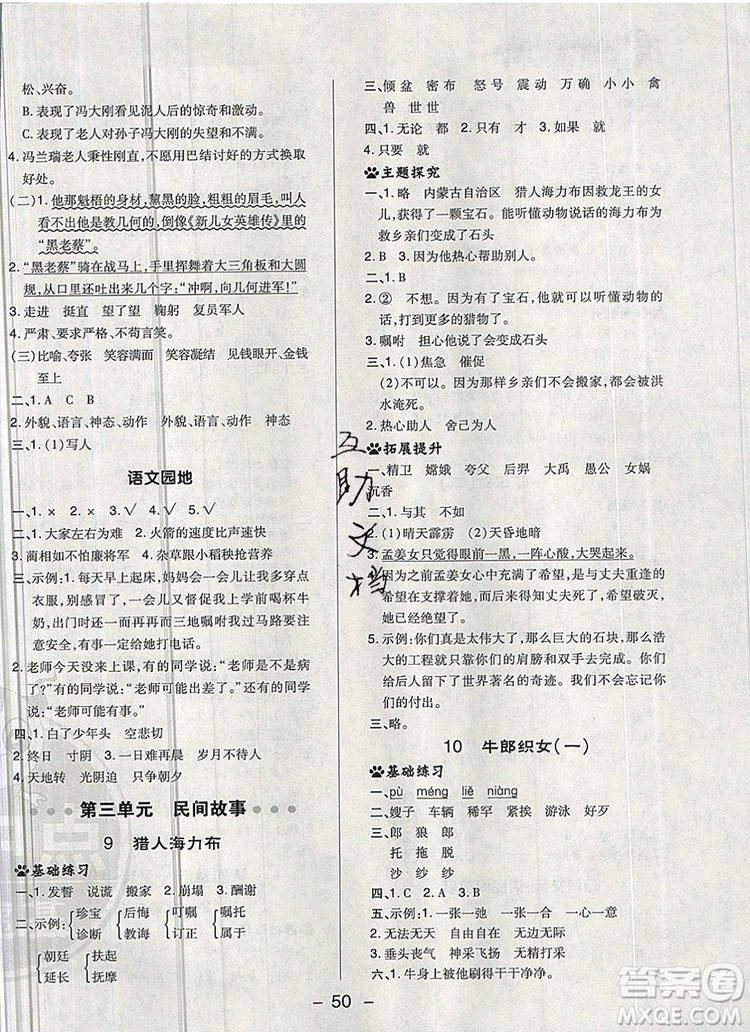 松、兴奋。
B. 表现了冯大刚看见泥人后的惊奇和激动。
C. 表现了老人对孙子冯大刚的失望和不满。
4. 冯兰瑞老人秉性刚直,不愿用巴结讨好的方式换取
好处。
(二)1. 他那魁梧的身材,黧黑的脸,粗粗的眉毛,叫人
看不出他是教几何的,倒像《新儿女英雄传》里的
“黑老蔡”。
2. “黑老蔡”骑在战马上,手里挥舞着大三角板和大圆
规,从口里还吐出来几个字:“冲啊,向几何进军!”
3. 走进 挺直 望了望 鞠躬 复员军人
4. 严肃、要求严格、不苟言笑。
(三)比喻、夸张 笑容满面 笑容凝结 见钱眼开、金钱
至上
二、1. A C B
2. 外貌、语言、神态、动作 外貌、语言、动作 神态
三、1. (1)写人
语文园地
一、1. × 2. × 3. √ 4. √ 5. √
二、1. 大家左右为难 2. 火箭的速度比声速快
3. 蔺相如不怕廉将军 4. 杂草跟小稻秧抢营养
三、示例:1. 每天早上起床,妈妈会一会儿让我多穿点
衣服,一会儿让我戴好红领巾,一会儿叫我喝杯牛
奶,出门时还一而再再而三地嘱咐过马路要注
意安全,有事一定给她打电话。
2. 老师今天没来上课,有的同学说:“老师可能生病
了吧?”有的同学说:“老师可能出差了。”还有的同学
说:“老师可能有事。”
四、1. 白了少年头 空悲切
2. 终日 寸阴 3. 一日难再晨 岁月不待人
4. 天地转 光阴迫 只争朝夕
第三单元 民间故事
9 猎人海力布
基础练习
一、1. 发誓 说谎 搬家 2. 崩塌 3. 酬谢
二、示例: 珍宝 后悔 叮嘱 嘱托
诊断 教诲 订正 属于
朝廷 扶起
延长 抚摩
三、倾盆 密布 怒号 震动 万确 小小 禽
兽 世世
四、1. 无论 都 2. 只有 才 3. 如果 就
4. 只要 就
主题探究
一、1. 略 内蒙古自治区 猎人海力布因救龙王的女
儿,获得了一颗宝石。能听懂动物说话的海力布为
救乡亲们变成了石头
二、1. B 3. 因为他热心帮助别人。
三、1. B
2. ② 不想。因为有了宝石,他就可以听懂动物的
话,打到更多的猎物了。
3. 嘱咐 担心他说了会变成石头
四、1. (1)焦急 催促
(2)不可以。因为乡亲们不会搬家,都会被洪
水淹死。
2. 热心助人 舍己为人
拓展提升
一、精卫 嫦娥 夸父 后羿 大禹 愚公 女娲
沉香
二、1. 与其 不如
2. (1)晴天霹雳 (2)天昏地暗
3. 孟姜女只觉得眼前一黑,一阵心酸,大哭起来。
因为之前孟姜女心中充满了希望,是与丈夫重逢的
希望在支撑着她,何况丈夫死了,希望破灭了,
她已经绝望了。
5. 示例:你们真是太伟大了,那么巨大的石块,那么浩
大的工程都是你们用自己的肩膀和双手完成的。你
们给后人留下了世界著名的奇迹。我们以你们为
傲!
三、略。
10 牛郎织女(一)
基础练习
一、pù méng liě niàng
二、嫂子 车辆 稀罕 紧挨 游泳 好歹
三、郎 狼 郎
托 拖 脱
沙 纱 纱
四、1. C 2. A 3. B
五、示例:1. 一张一弛 一文一武(一心一意)
2. 无法无天 自由自在 无边无际
3. 垂头丧气 神采飞扬 手舞足蹈
六、1. 牛身上被他刷得干干净净。
50
互助文档
答案圈
MXQE.COM